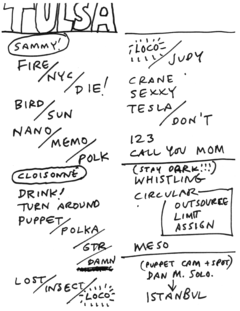 TULSA
SAMMY!
FIRE/
NYC/
DIE!
BIRD/
SUN
NANO/
MEMO/
POLK
CLOISONNÉ
DRINK!
TURN AROUND
PUPPET/
POLKA/
GTR
DAMN
LOST/
INSECT/
LOCO
LOCO/
JUDY
CRANE
SEXXY
TESLA/
DON'T
123
CALL YOU MOM
(STAY DARK!!!)
WHISTLING
CIRCULAR
OUTSOURCE
LIMIT
ASSIGN
MESO
(PUPPET CAM + SPOT)
DAN M. SOLO.
ISTANBUL